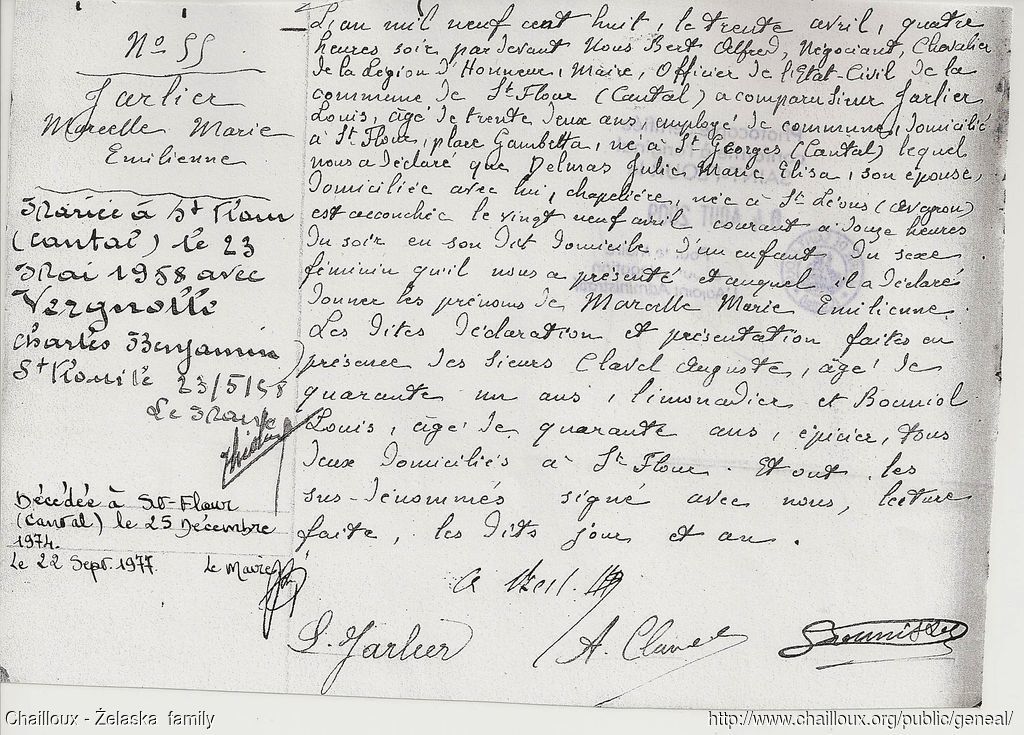 No 55
Jarlier
Marcelle Marie
Emilienne
Mariée à St Flour
(Cantal) le 23
Mai 1958 avec
Vergnolle
Charles Benjamin
St Flour le 23/5/58
Le Maire
Décédée à St-Flour
(Cantal) le 25 Décembre
1974.
Le 22 Sept. 1977. Le Maire
L'an mil neuf cent huit, le trente avril, quatre
heures soir, par devant Nous Bert Alfred, Négociant, Chevalier
de la Légion d'Honneur, Maire, Officier de l'Etat-Civil de la
commune de St Flour (Cantal) a comparu Sieur Jarlier
Louis, âgé de trente deux ans employé de commune, domicilié
à St Flour, place Gambetta, né à St Georges (Cantal) lequel
nous a déclaré que Delmas Julie Marie Elisa, son épouse,
domiciliée avec lui, chapelière, née à St Léons (Avayron)
est accouchée le vingt neuf avril courant à douze heures
du soir en son dit domicile d'un enfant du sexe
féminin qu'il nous a présenté et auquel il a déclaré
donner les prénoms de Marcelle Marie Emilienne.
Les dites déclaration et présentation faites en
présence des sieurs Clavel Auguste, âgé de
quarante un ans, limonadier et Bouniol
Louis, âgé de quarante ans, épicier, tous
deux domiciliés à St Flour. Et ont les
sus-dénommés signé avec nous, lecture
faite, les dits jour et an.
L. Jarlier A. Clavel
Chailloux - Żelaska family http://www.chailloux.org/public/geneal/